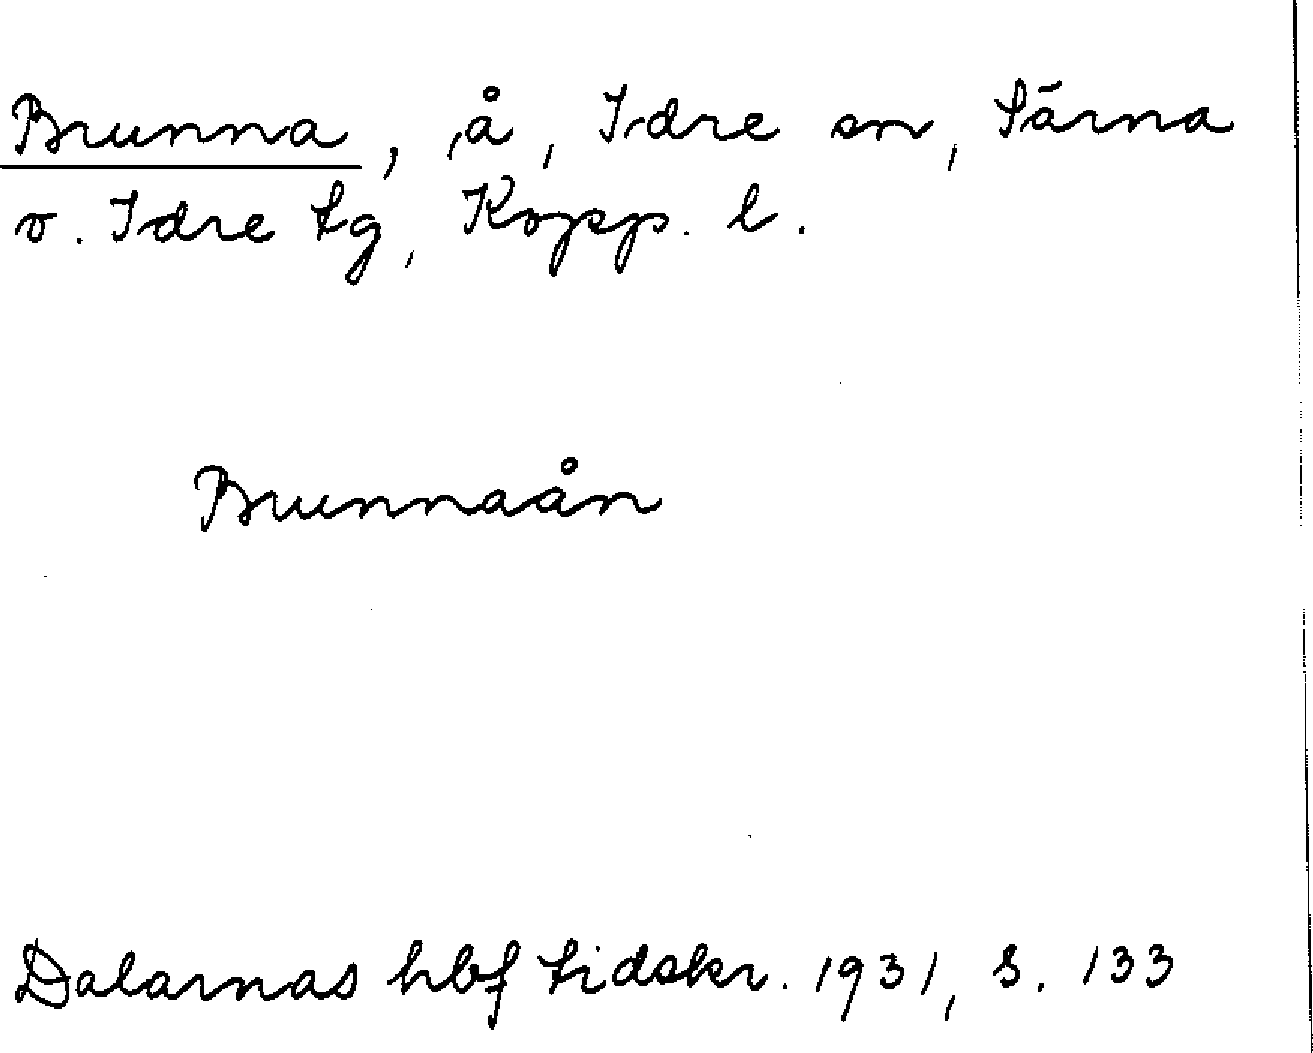 Brunna, å, Idre sn, Särna
o. Idre tg, Kopp. l.
Brunnaån
Dalarnas hbf tidskr. 1931, s. 133